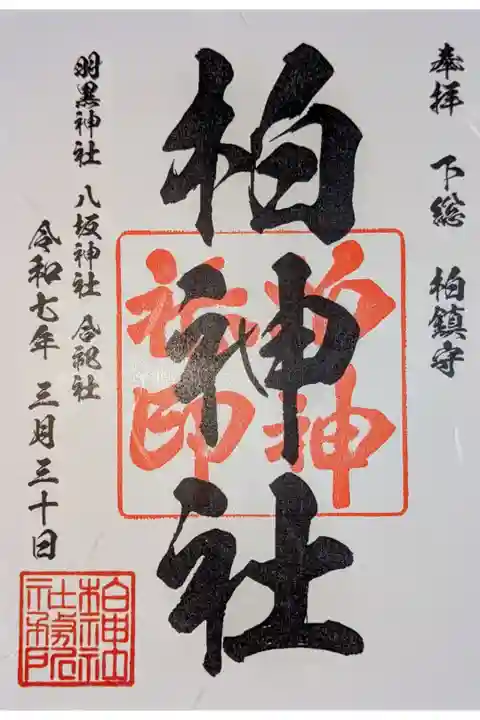 奉拝 下総 柏鎮守
柏神社
柏神社印
羽黒神社 八坂神社 合祀社
令和七年 三月三十日
柏神社社務所